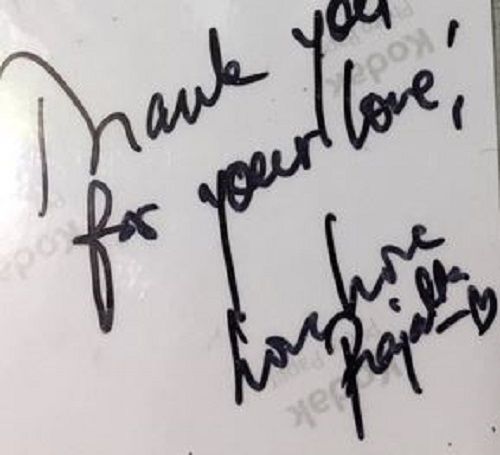 Thank you
for your love,
love
Prajakta
Kodak
Kodak
Kodak